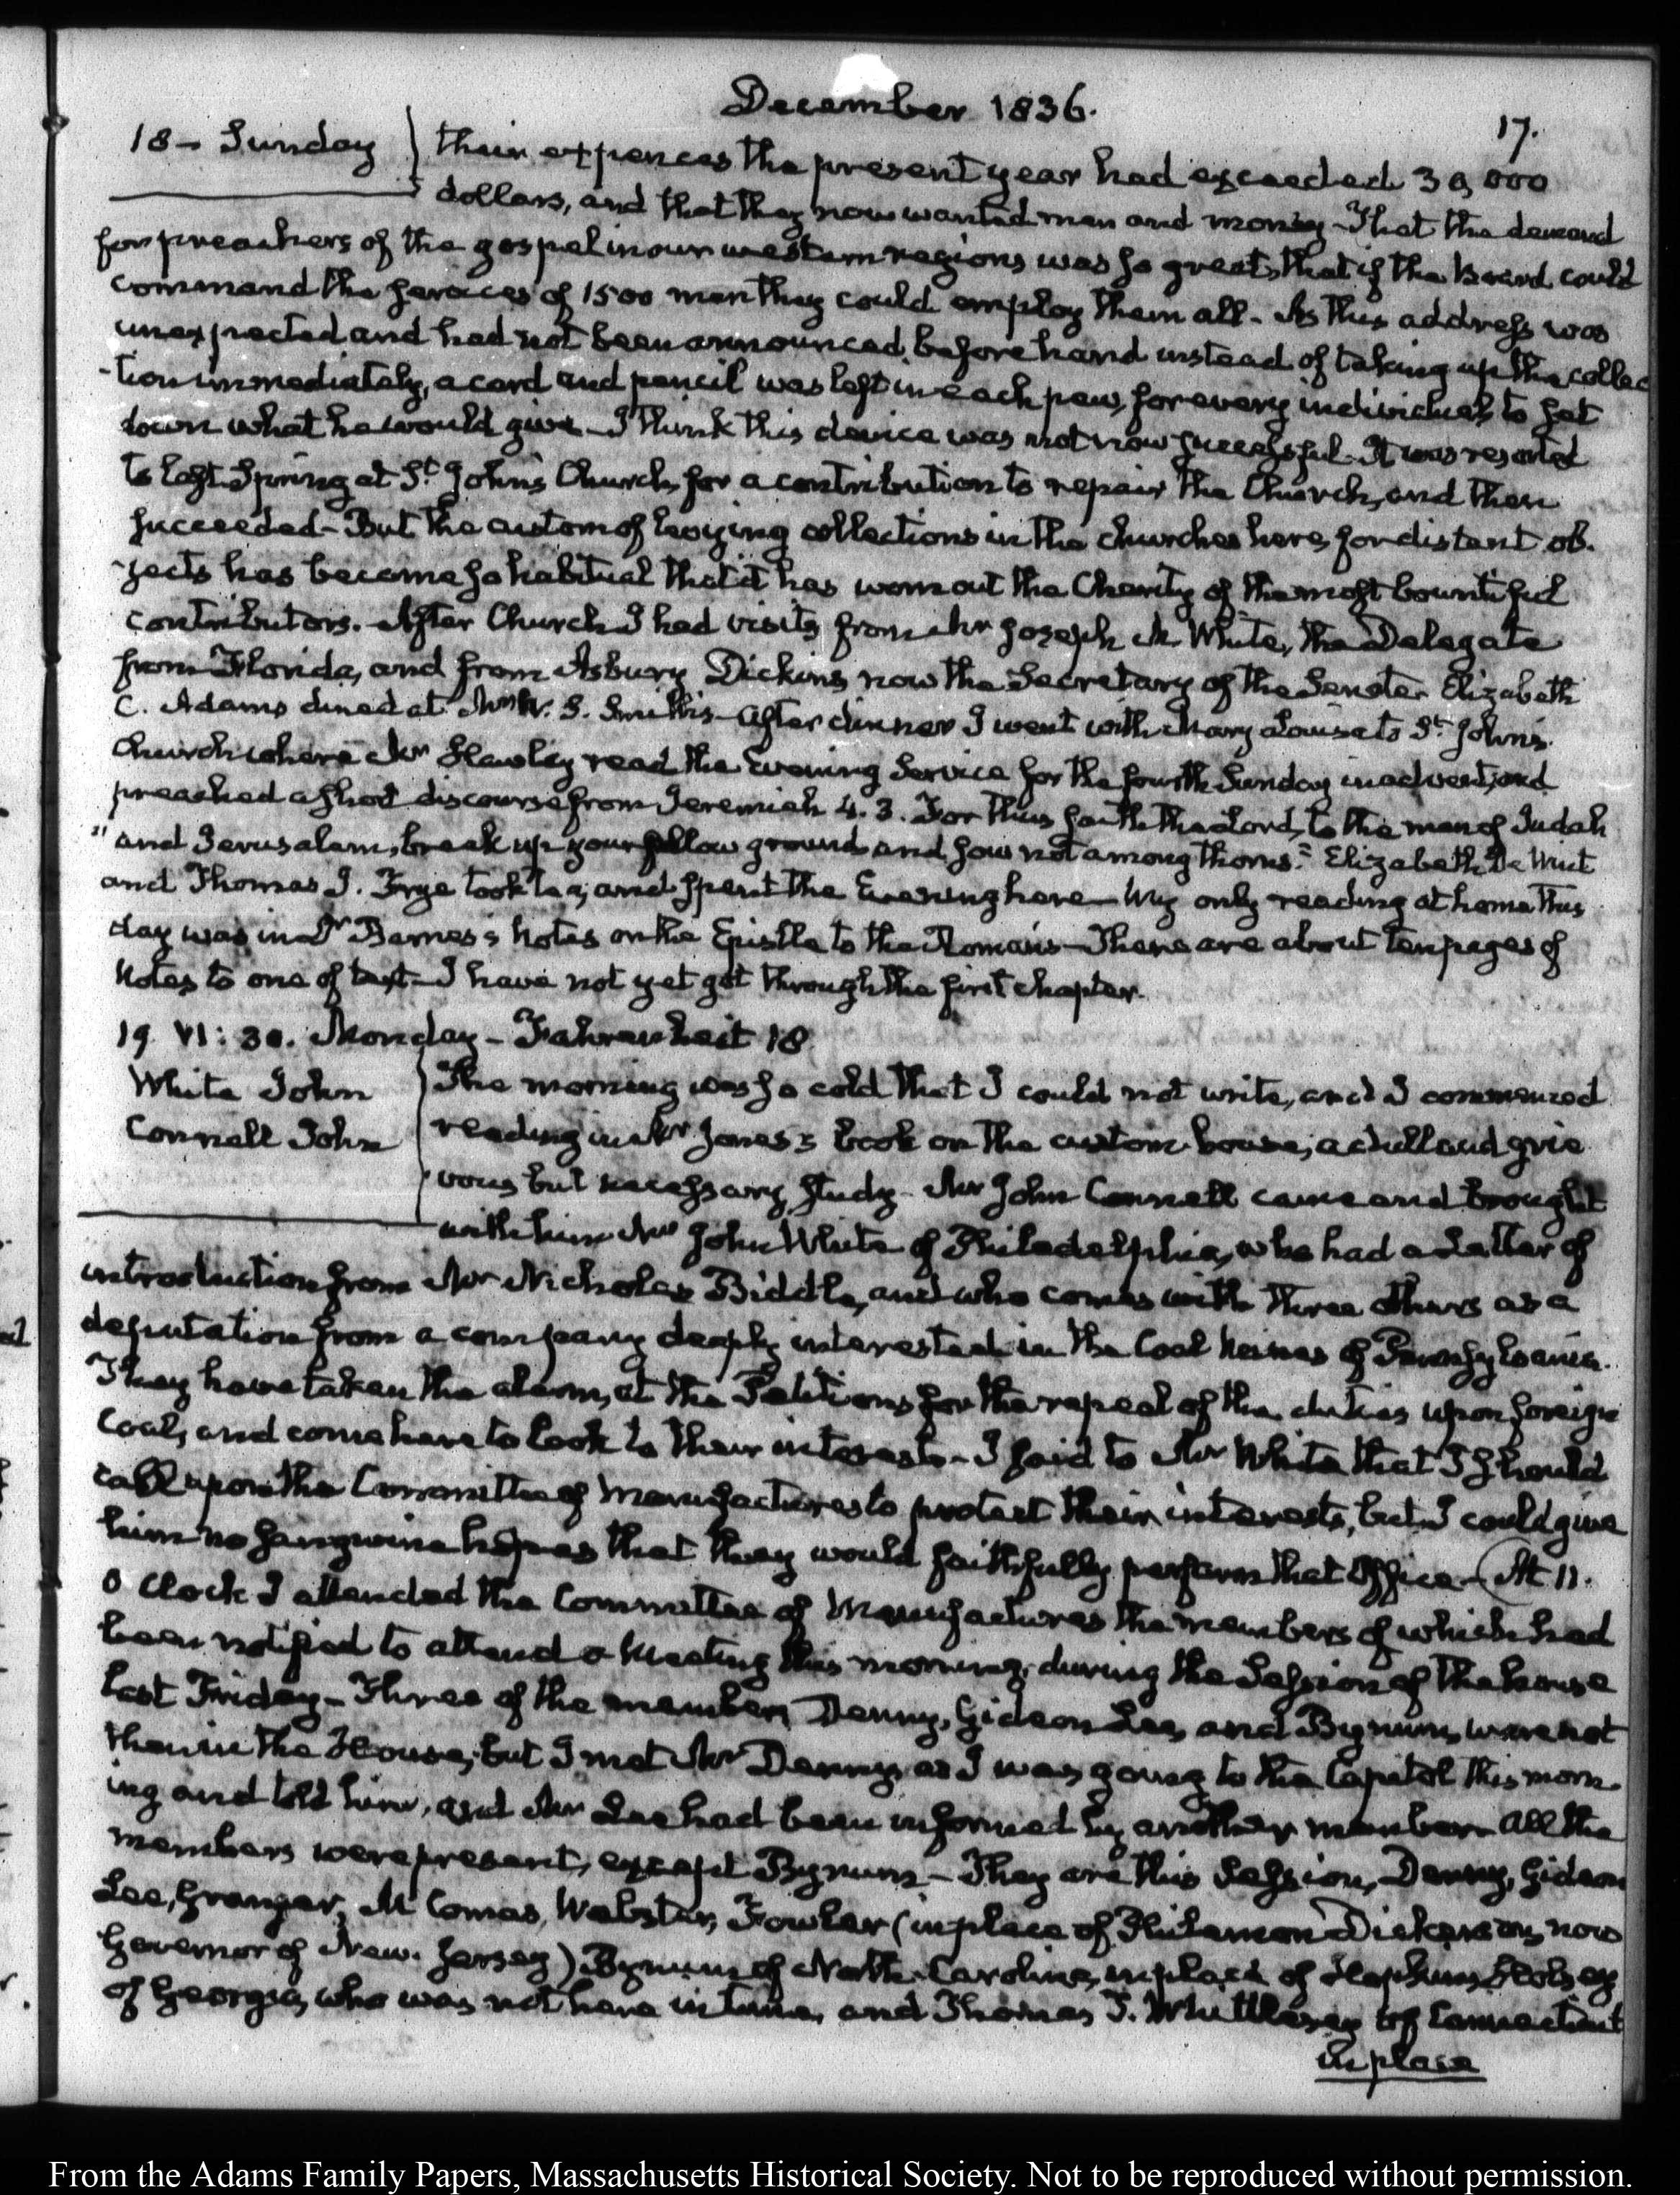 December 1836.
17.
18 – Sunday } their expences the present year had exceeded 30,000
dollars, and that they now wanted men and money – That the demand
for preachers of the gospel in our western regions was so great, that if the Board could
command the services of 1500 men they could employ them all – As this address was
unexpected and had not been announced, beforehand instead of taking up the collec
-tion immediately, a card and pencil was left in each pew, for every individual, to set
down what he would give – I think this device was not now successful. It was resorted
to last Spring at St. John's Church, for a contribution to repair the Church, and then
succeeded – But the custom of levying collections in the churches here, for distant ob-
-jects has become so habitual that it has worn out the Charity of the most bountiful
contributors. After Church I had visits from Mr Joseph M. White, the Delegate
from Florida, and from Asbury Dickins now the Secretary of the Senate. Elizabeth
C. Adams dined at Mr W. S. Smith's – After dinner I went with Mary Louisa to St. John's
Church where Mr Hawley read the Evening Service for the fourth Sunday in advent, and
preached a short discourse from Jeremiah 4. 3. For thus saith the Lord, to the men of Judah
"and Jerusalem, break up your fallow ground and sow not among thorns." Elizabeth De Wint
and Thomas J. Frye took tea, and spent the Evening here – My only reading at home this
day was in Mr Barnes's Notes on the Epistle to the Romans – There are about ten pages of
Notes to one of text – I have not yet got through the first chapter.
19. VI: 30. Monday – Fahrenheit 18
White John } The morning was so cold that I could not write, and I commenced
Connell John reading in Mr Jones's book on the custom house, a dull and grie
vous but necessary study – Mr John Connell came and brought
with him Mr John White of Philadelphia, who had a Letter of
introduction from Mr Nicholas Biddle, and who comes with three others as a
deputation from a company deeply interested in the Coal Mines of Pennsylvania.
They have taken the alarm, at the Petitions for the repeal of the duties upon foreign
Coal, and come here to look to their interests – I said to Mr White that I should
call upon the Committee of Manufactures to protect their interests, but I could give
him no sanguine hopes that they would faithfully perform that Office – (At 11.
O'Clock I attended the Committee of Manufactures the members of which had
been notified to attend a Meeting this morning, during the Session of the house
last Friday – Three of the members, Denny, Gideon Lee, and Bynum, were not
then in the House, but I met Mr Denny as I was going to the Capitol this morn
ing and told him, and Mr Lee had been informed by another member. All the
members were present, except Bynum – They are this Session, Denny, Gideon
Lee, Granger, McComas, Webster, Fowler (in place of Philemon Dickerson, now
Governor of New-Jersey) Bynum of North-Carolina, in place of Hopkins Holsey
of Georgia, who was not here in time, and Thomas T. Whittlesey of Connecticut
in place
From the Adams Family Papers, Massachusetts Historical Society. Not to be reproduced without permission.